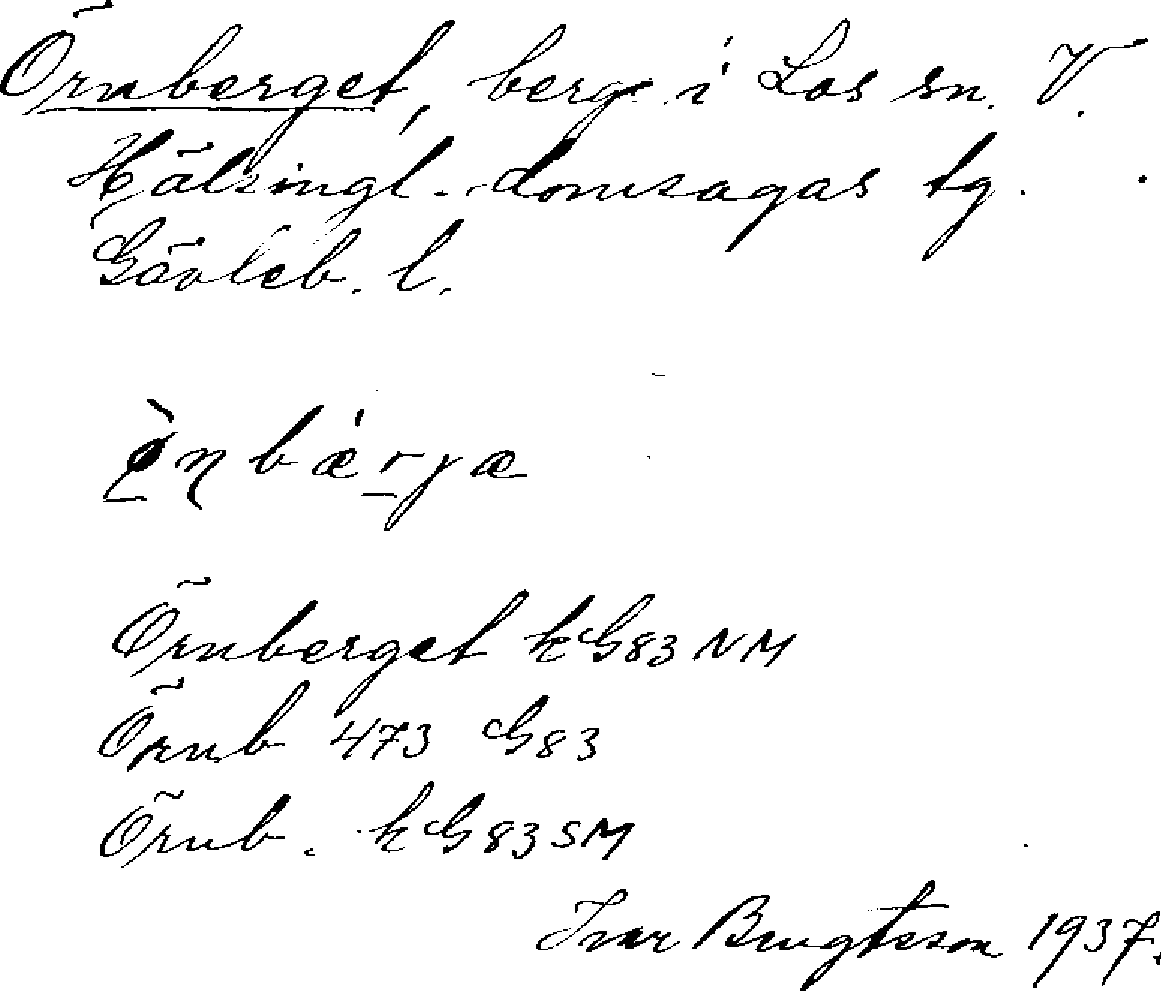 Örnberget, berg i Los sn. V.
Hälsingl. domsagas tg.
Gävleb. l.
ø̀ɳbæ̀r̠jæ
Örnberget kG83NM
Örnb 473 G83
Örnb. kG83SM
Ivar Bengtsson 1937.